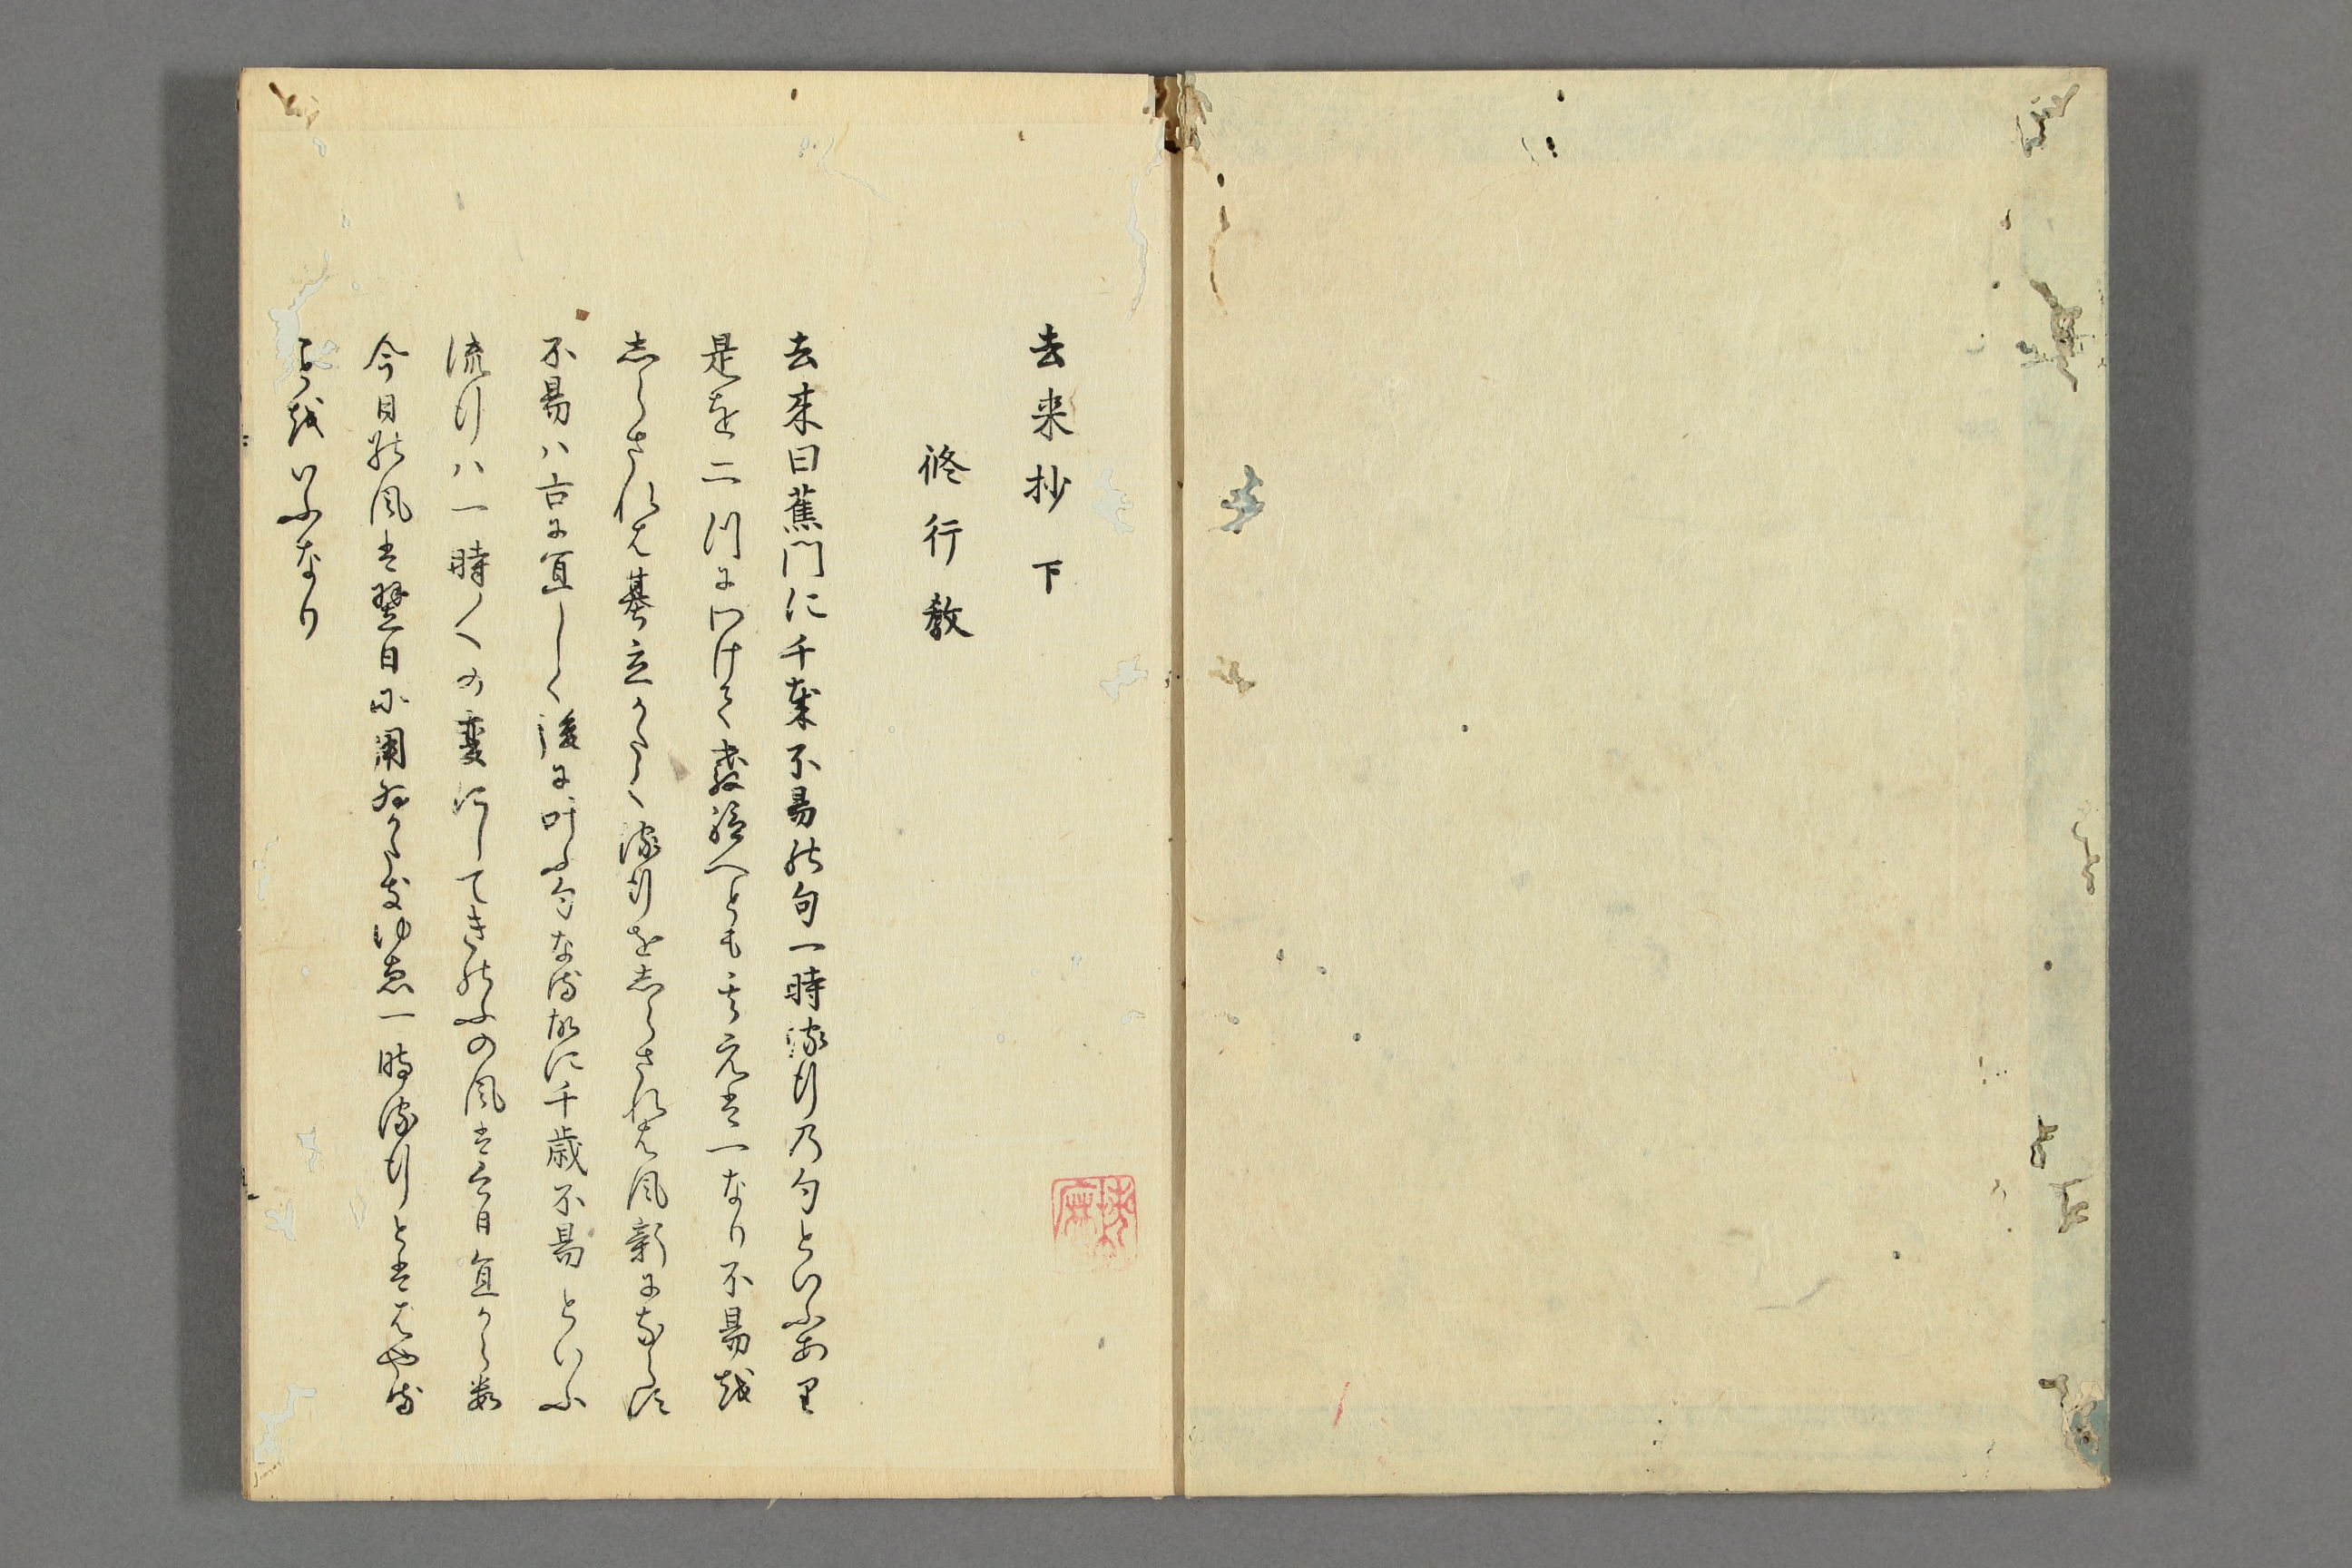 去来抄 下
修行教
去来曰蕉門に千歳不易の句一時流行の句といふあり
是を二つにわけて教給へとも其元は一なり不易を
しらされは基立かたく流行をしらされは風新にならす
不易ハ古に宜しく後に叶ふ句なる故に千歳不易といふ
流行ハ一時〱の変にしてきのふの風は今日宜からす
今日の風は翌日に用ゐかたきゆゑ一時流行とははやる
ことをいふなり